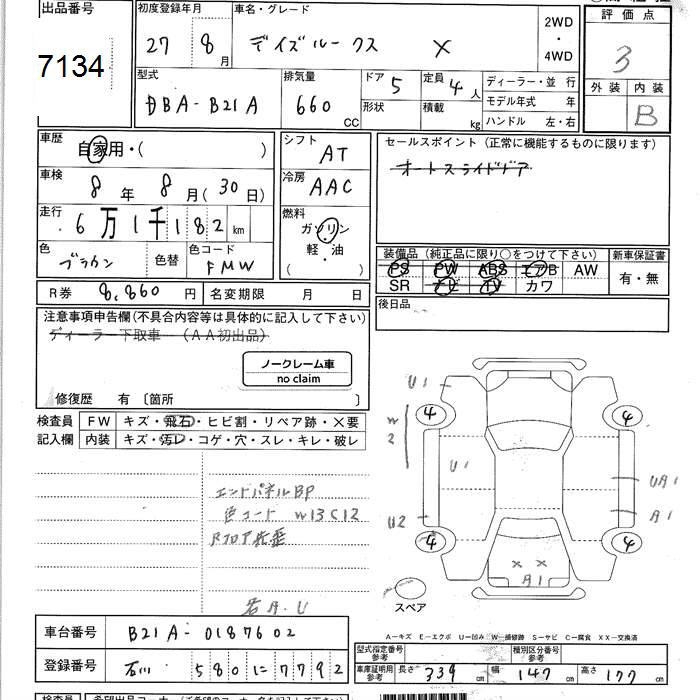 出品番号
7134
初度登録年月
27 8月
車名・グレード
デイズルークス X
2WD
・
4WD
評価点
3
外装 内装
B
型式
DBA-B21A
排気量
660
CC
ドア
5
定員
4人
形状
積載
kg
ディーラー・並 行
モデル年式 年
ハンドル 左・右
車歴
自家用・( )
車検
8年 8月(30日)
走行
6万1千182km
色
ブラウン
色替
色コード
FMW
シフト
AT
冷房
AAC
燃料
ガソリン
軽・油
( )
セールスポイント(正常に機能するものに限ります)
オートスライドドア
装備品(純正品に限り○をつけて下さい)
PS PW ABS エアB AW
SR ナビ TV カワ
新車保証書
有・無
後日品
R券 8,860円
名変期限 月 日
注意事項申告欄(不具合内容等は具体的に記入して下さい)
ディーラー下取車 (AA初出品)
ノークレーム車
no claim
修復歴 有 〔箇所 〕
検査員
記入欄
FW キズ・飛石・ヒビ割・リペア跡・×要
内装 キズ・汚レ・コゲ・穴・スレ・キレ・破レ
エンドパネルBP
色コード W13C12
U1
4
4
W2
U1
UA1
A1
U2
4
4
× ×
A1
スペア
A-キズ E-エクボ U-凹み W-補修跡 S-サビ C-腐食 XX-交換済
車台番号
B21A-0187602
登録番号
石川 580 に 7792
型式指定番号
参考
種別区分番号
参考
車庫証明用
参考
長さ 339cm
幅 147cm
高さ 177cm